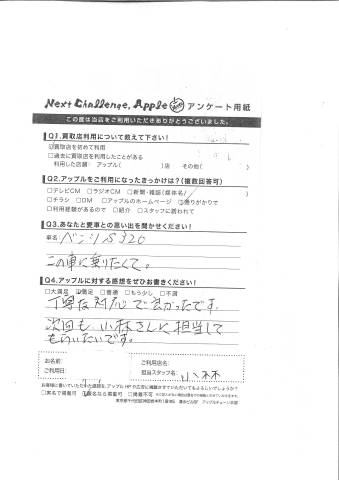 Next Challenge, Apple アンケート用紙
この度は当店をご利用いただきありがとうございました。
Q1.買取店利用について教えて下さい！
☑買取店を初めて利用
□過去に買取店を利用したことがある
利用した店舗： アップル( )店 その他( )
Q2.アップルをご利用になったきっかけは？(複数回答可)
□テレビCM □ラジオCM □新聞・雑誌(媒体名/ )
□チラシ □DM □アップルのホームページ ☑通りがかりで
□利用経験があるので □紹介 □スタッフに誘われて
Q3.あなたと愛車との思い出を聞かせください！
車名 ベンツS320
この車に乗りたくて。
Q4.アップルに対する感想をぜひお書きください！
□大満足 ☑満足 □普通 □もう少し □不満
丁寧な対応で良かったです。
次回も、小林さんに担当して
もらいたいです。
お名前: ご利用店名:
ご利用日: 担当スタッフ名: 小林
お客様に書いていただいた感想を、アップルHPや広告に掲載させていただいてもよろしいでしょうか？
□実名で掲載可 ☑匿名なら掲載可 □掲載不可